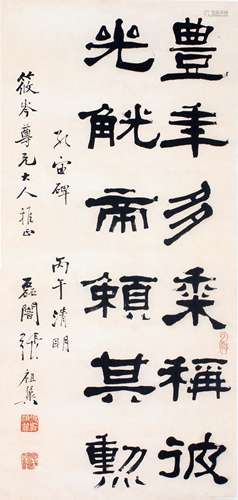 豐年多黍稱彼
兕觥帝賴其勳
孔宙碑 丙午清明
筱岑尊兄大人雅正 磊闇張祖翼